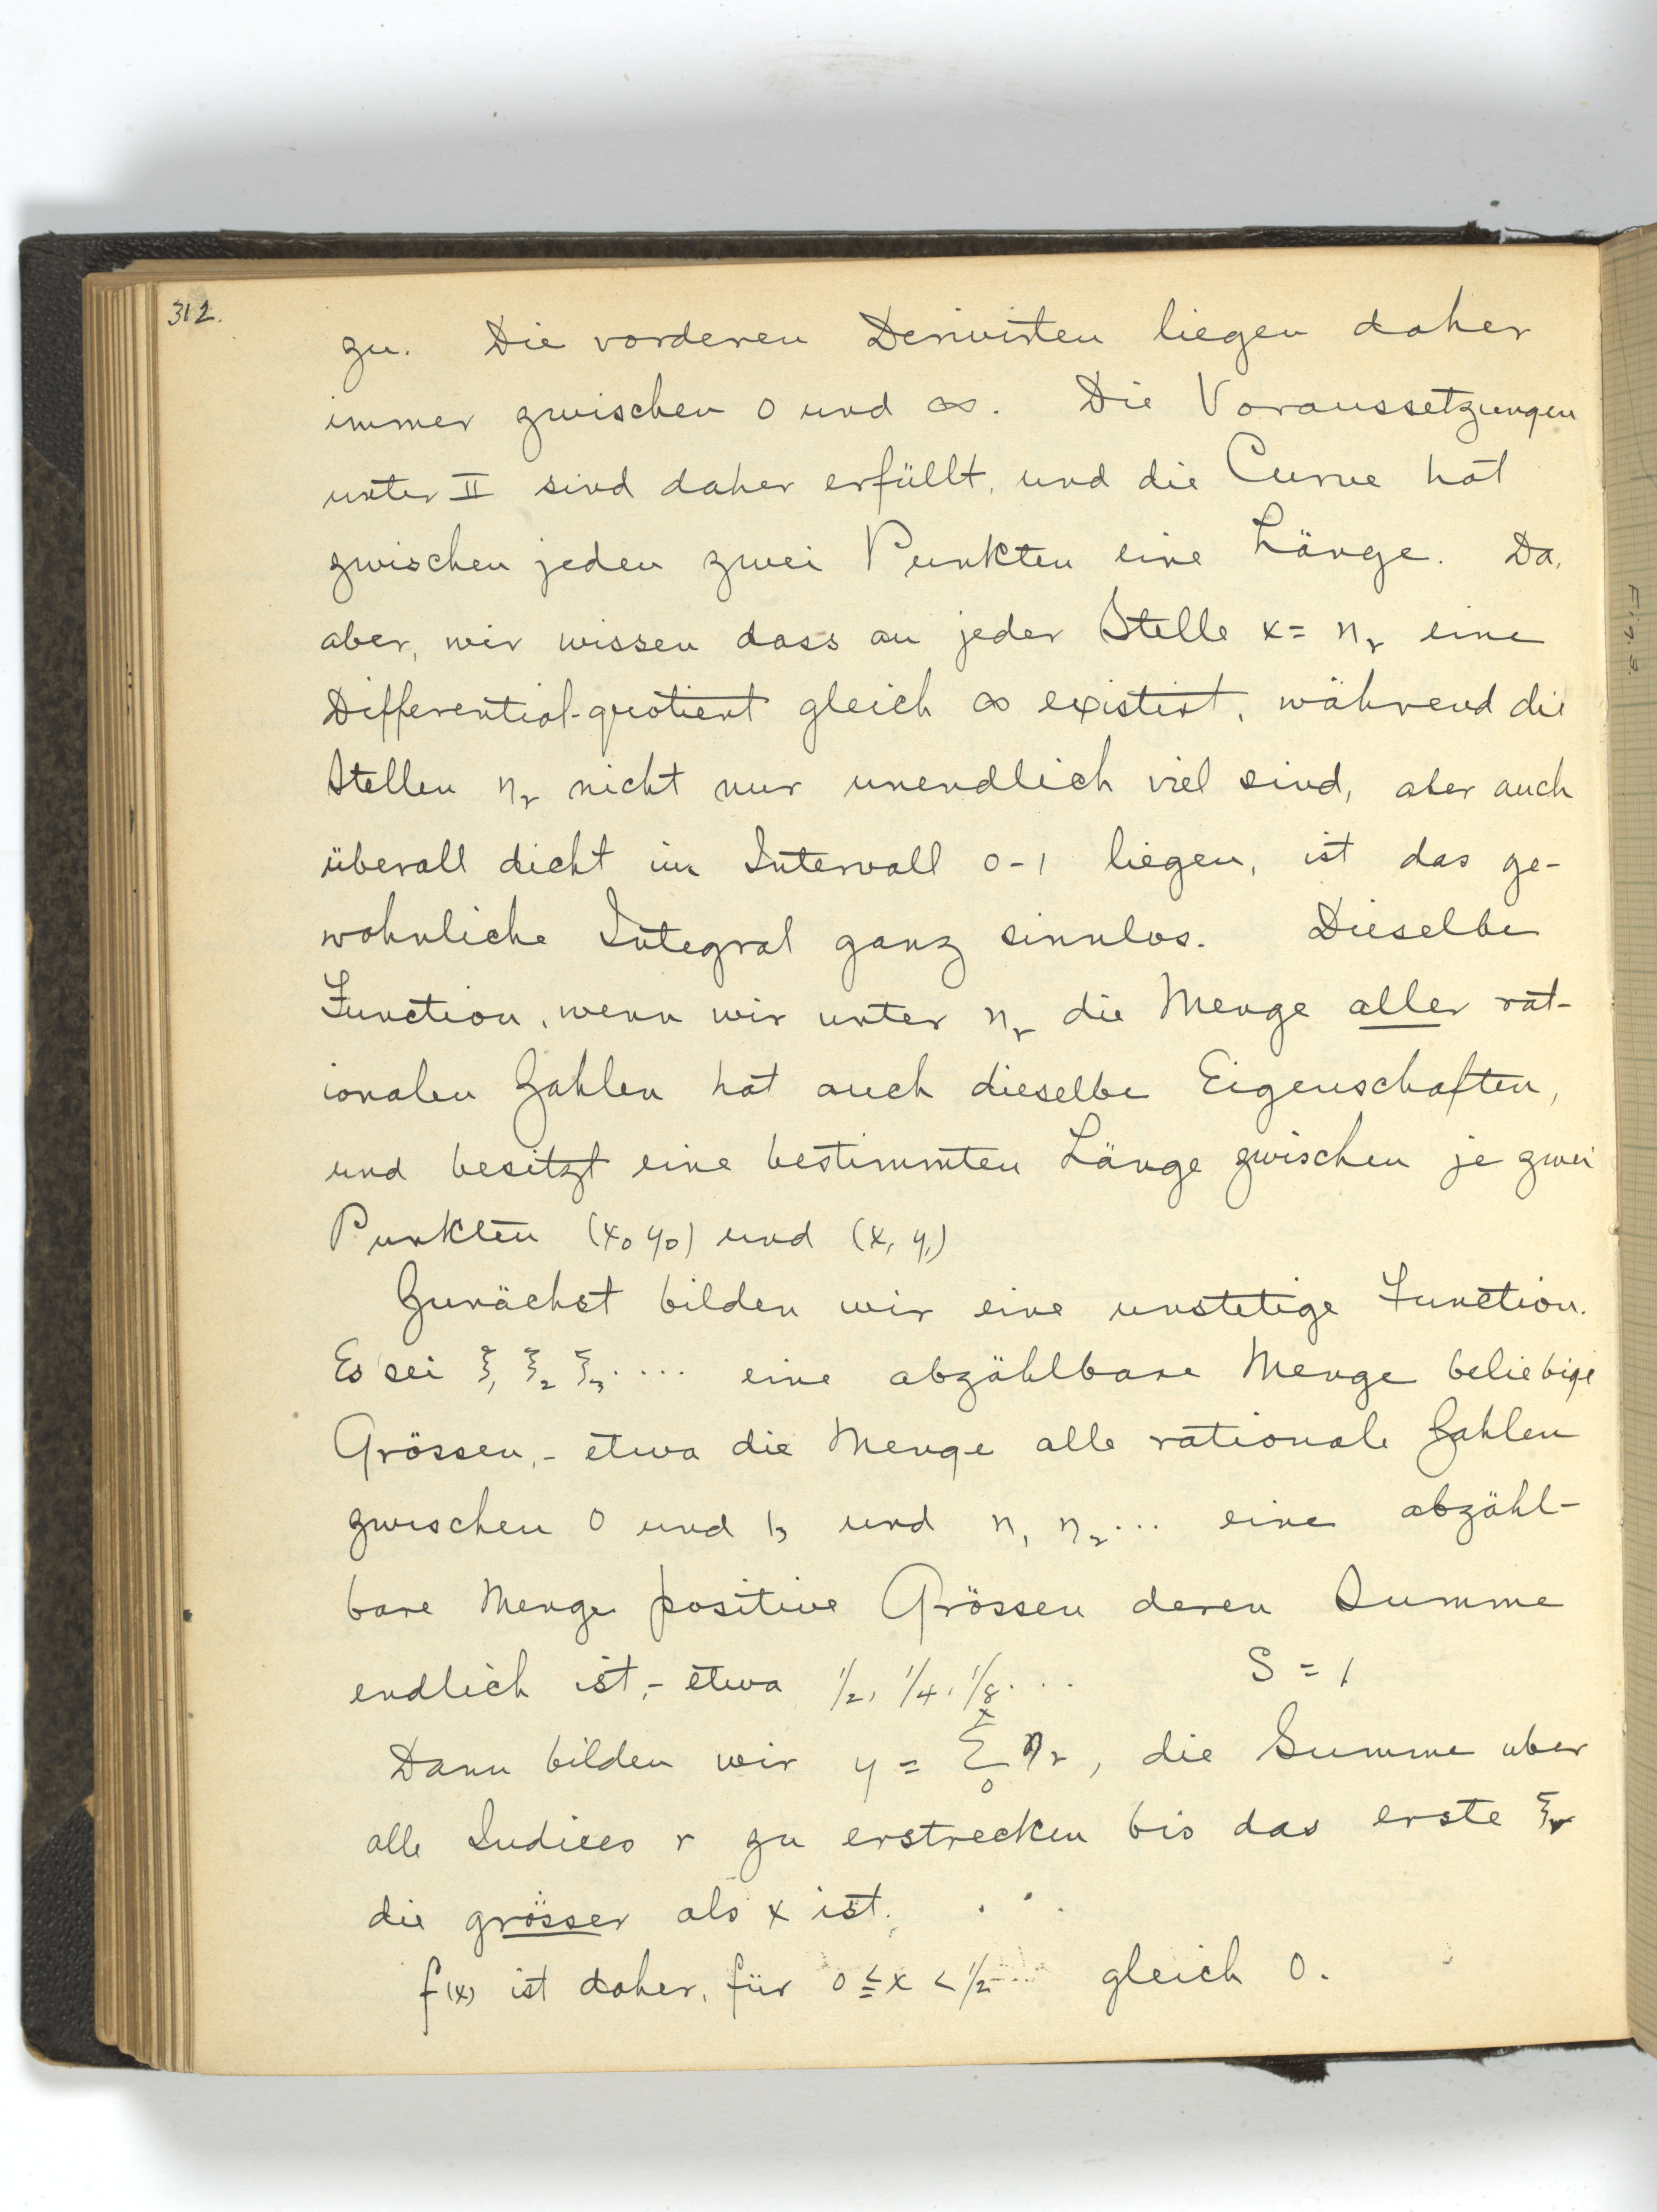 312.
zu. Die vorderen Derivirten liegen daher
immer zwischen 0 und ∞. Die Voraussetzungen
unter II sind daher erfüllt, und die Curve hat
zwischen jeden zwei Punkten eine Länge. Da,
aber, wir wissen dass an jeder Stelle x = η_r eine
Differential-quotient gleich ∞ existirt, während die
Stellen η_r nicht nur unendlich viel sind, aber auch
überall dicht im Intervall 0-1 liegen, ist das ge-
wohnliche Integral ganz sinnlos. Dieselbe
Function, wenn wir unter η_r die Menge aller rat-
ionalen Zahlen hat auch dieselbe Eigenschaften,
und besitzt eine bestimmten Länge zwischen je zwei
Punkten (x₀ y₀) und (x₁ y₁)
Zunächst bilden wir eine unstetige Function.
Es sei ξ₁ ξ₂ ξ₃ .... eine abzählbare Menge beliebige
Grössen, - etwa die Menge alle rationale Zahlen
zwischen 0 und 1, und η₁ η₂ ... eine abzähl-
bare Menge positive Grössen deren Summe
endlich ist, - etwa 1/2, 1/4, 1/8 ... S = 1
Dann bilden wir y = Σ₀ˣ η_r, die Summe uber
alle Indices r zu erstrecken bis das erste ξ_r
die grösser als x ist.
f(x) ist daher, für 0 ≦ x < 1/2 gleich 0.
Fig. 3.